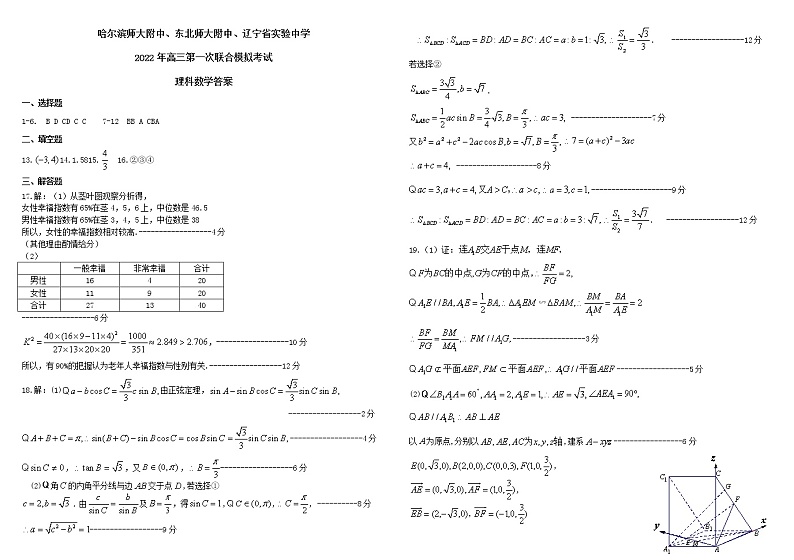 哈尔滨师大附中、东北师大附中、辽宁省实验中学
2022年高三第一次联合模拟考试
理科数学答案
一、选择题
1-6. B D CD C C 7-12 BB A CBA
二、填空题
13.(−3,4)14.1.5815. 4/3 16.②③④
三、解答题
17.解:（1）从茎叶图观察分析得,
女性幸福指数有65%在茎4, 5, 6上, 中位数是46.5
男性幸福指数有65%在茎3, 4, 5上, 中位数是38
所以, 女性的幸福指数相对较高.------------------4分
（其他理由酌情给分）
（2）
一般幸福 非常幸福 合计
男性 16 4 20
女性 11 9 20
合计 27 13 40
------------------6分
K² = 40×(16×9−11×4)²/(27×13×20×20) = 1000/351 ≈ 2.849 > 2.706, ------------------10分
所以, 有90%的把握认为老年人幸福指数与性别有关.------------------12分
18.解:(1)Q a − b cos C = √3/3 c sin B, 由正弦定理, sin A − sin B cos C = √3/3 sin C sin B,
------------------2分
Q A + B + C = π, ∴ sin(B+C) − sin B cos C = cos B sin C = √3/3 sin C sin B, ------------------4分
Q sin C ≠ 0, ∴ tan B = √3, 又 B ∈ (0, π), ∴ B = π/3 ------------------6分
(2)Q 角 C 的内角平分线与边 AB 交于点 D, 若选择①
c = 2, b = √3. 由 c/sin C = b/sin B 及 B = π/3, 得 sin C = 1, Q C ∈ (0, π), ∴ C = π/2, ----------8分
∴ a = √(c² − b²) = 1------------------9分
∴ S△BCD : S△ACD = BD : AD = BC : AC = a : b = 1 : √3, ∴ S₁/S₂ = √3/3. ------------------12分
若选择②
S△ABC = 3√3/4, b = √7,
S△ABC = 1/2 ac sin B = 3/4 √3, B = π/3, ∴ ac = 3, --------------------7分
又 b² = a² + c² − 2ac cos B, b = √7, B = π/3, ∴ 7 = (a + c)² − 3ac
∴ a + c = 4, --------------------8分
Q ac = 3, a + c = 4, 又 A > C, ∴ a > c, ∴ a = 3, c = 1, --------------------9分
∴ S△BCD : S△ACD = BD : AD = BC : AC = a : b = 3 : √7, ∴ S₁/S₂ = 3√7/7. ------------------12分
19.（1）证: 连A₁B交AE于点M, 连MF.
Q F为BC的中点, G为CF的中点, ∴ BF/FG = 2,
Q A₁E // BA, A₁E = 1/2 BA, ∴ ΔA₁EM ∽ ΔBAM, ∴ BM/A₁M = BA/A₁E = 2
∴ BF/FG = BM/MA₁, ∴ FM // A₁G, ------------------3分
Q A₁G ⊄ 平面AEF, FM ⊂ 平面AEF, ∴ A₁G // 平面AEF ------------------5分
(2)Q ∠B₁A₁A = 60°, AA₁ = 2, A₁E = 1, ∴ AE = √3, ∠AEA₁ = 90°,
Q AB // A₁B₁ ∴ AB ⊥ AE
以 A 为原点, 分别以 AB, AE, AC 为 x, y, z 轴, 建系 A − xyz ------------------6分
E(0, √3, 0), B(2, 0, 0), C(0, 0, 3), F(1, 0, 3/2),
AE = (0, √3, 0), AF = (1, 0, 3/2),
EB = (2, −√3, 0), BF = (−1, 0, 3/2)
z
C₁ C
G
F
y B₁ B x
E M
A₁ A